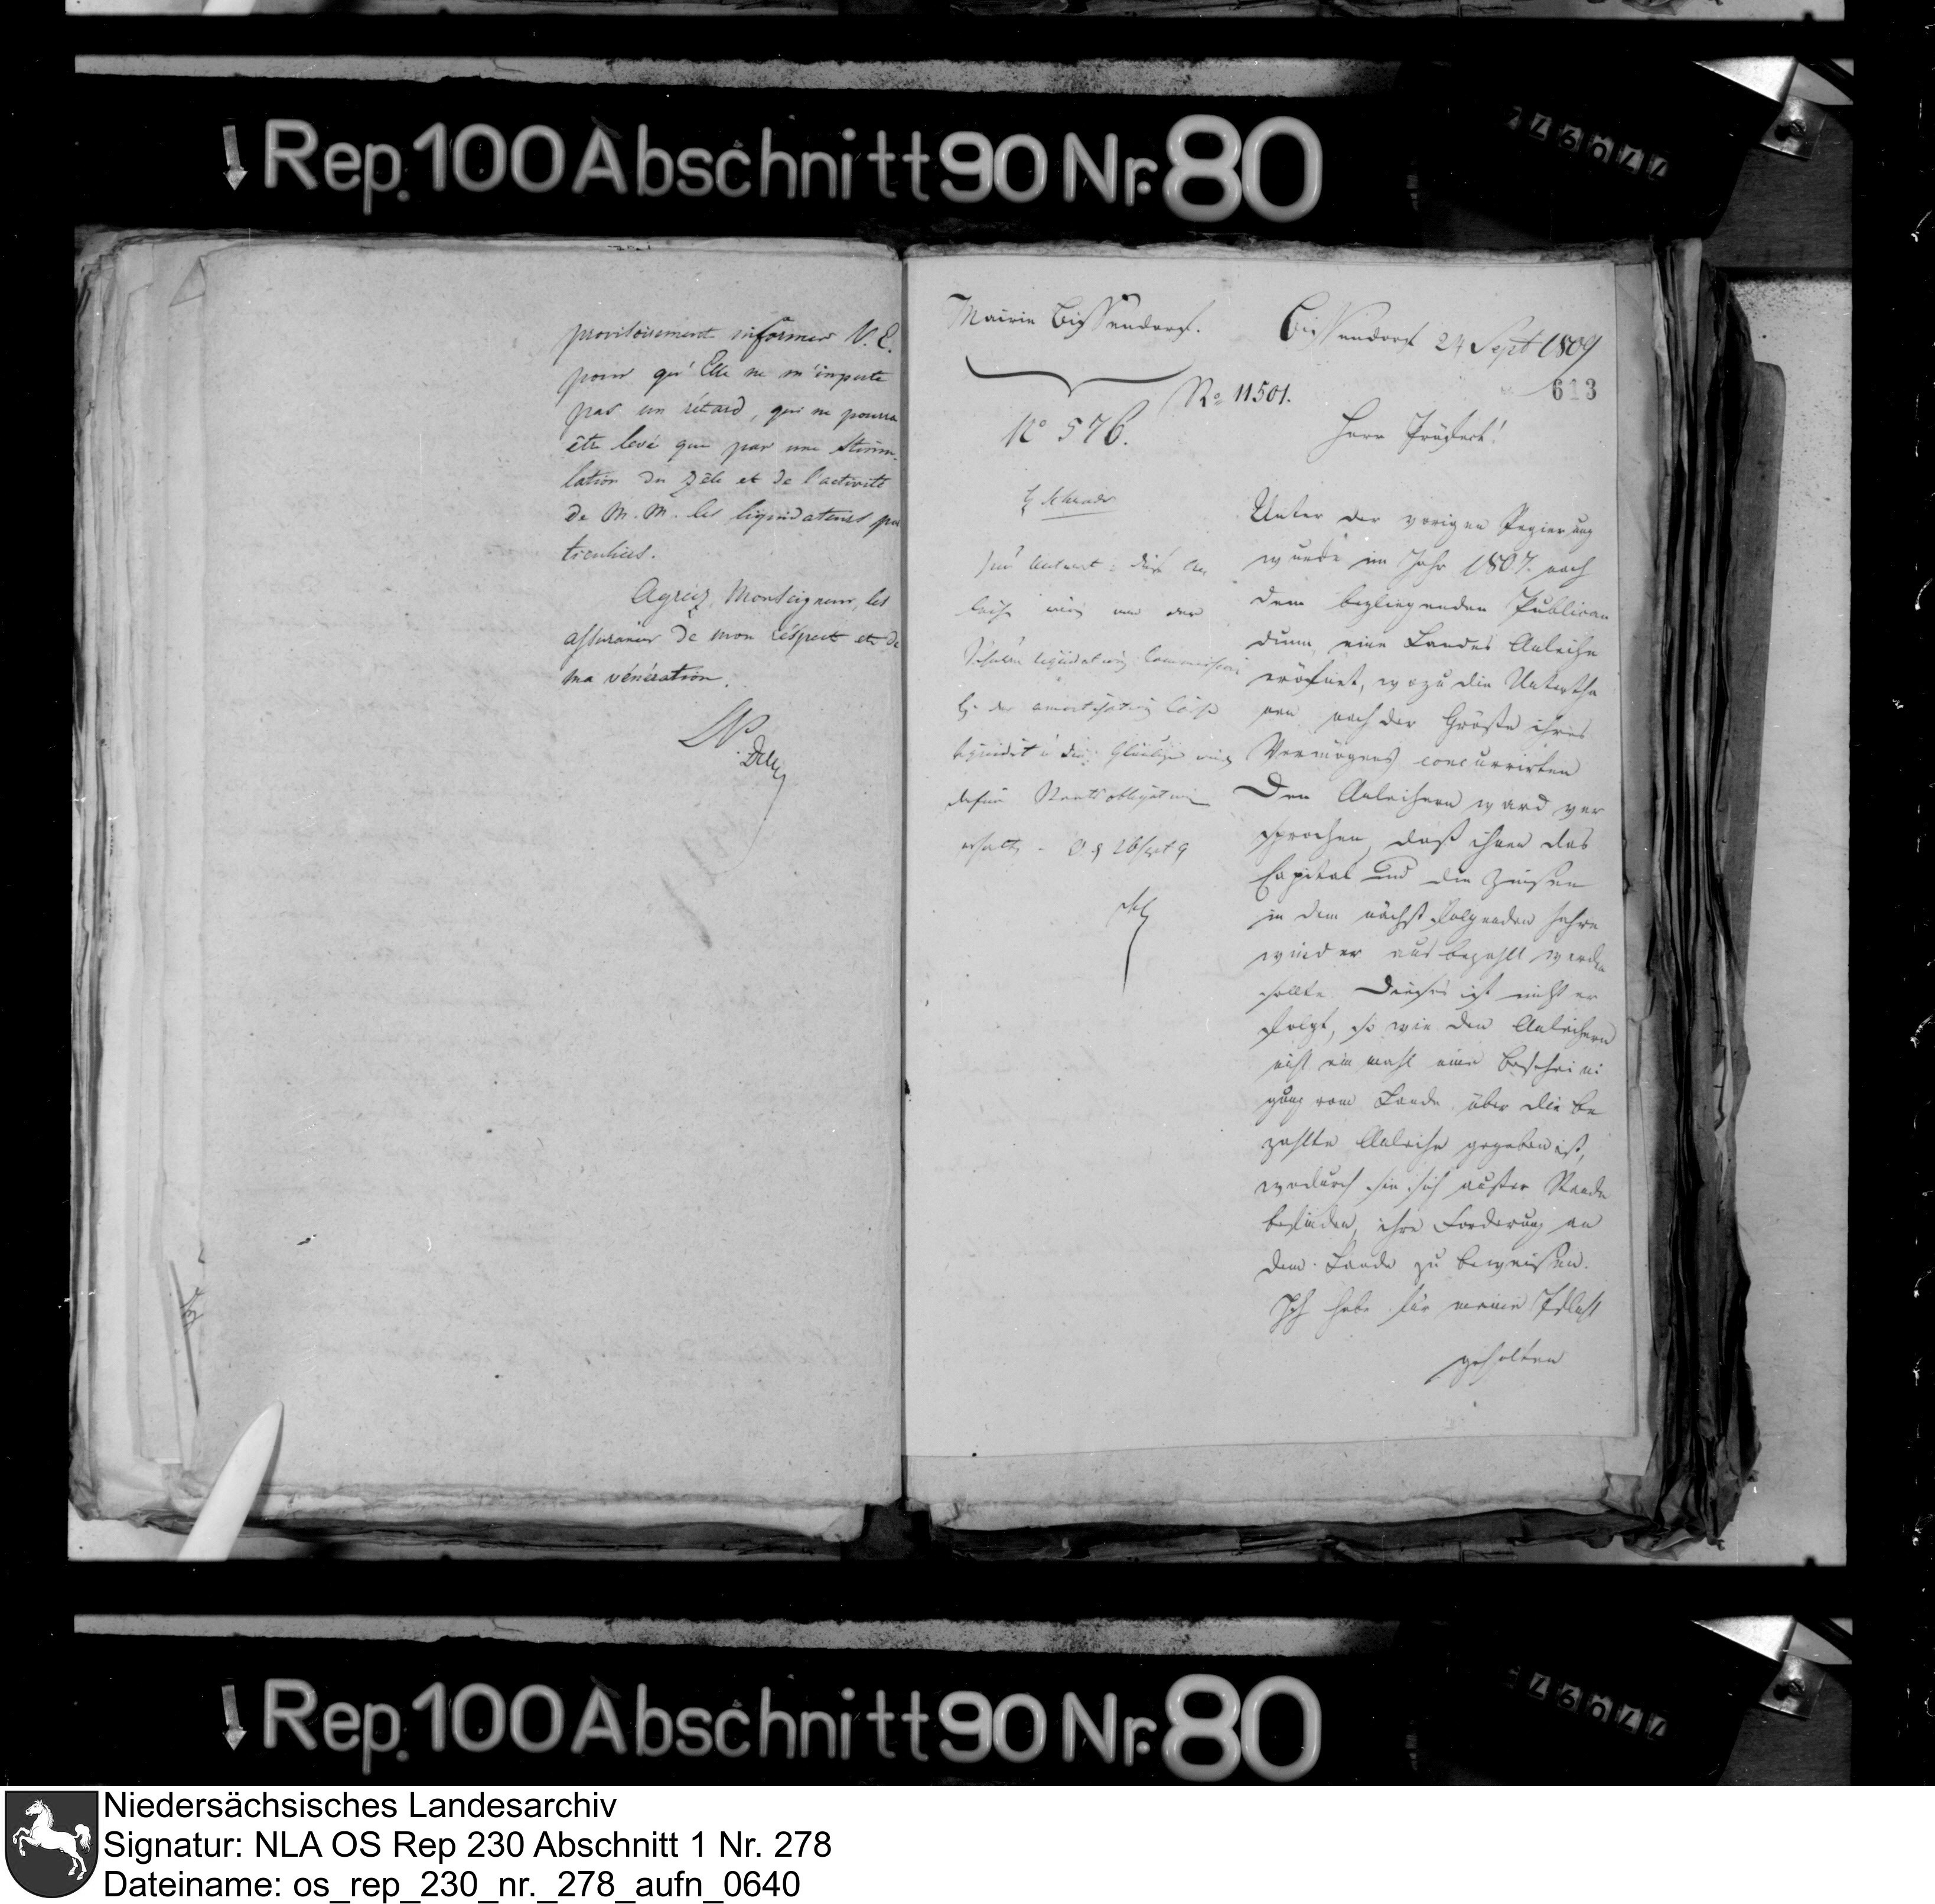 Rep. 100 Abschnitt 90 Nr. 80
provisoirement informer V. E.
pour qu'Elle ne m'impute
pas un rétard, qui ne pourra
être levé que par une stimu-
lation du zêle et de l'activité
de M. M. les liquidateurs par
ticuliers.
Agréez, Monseigneur, les
assurances de mon réspect et de
ma vénération.
Mairie Bissendorf.
Bissendorf 24 Sept 1809
613
No 11501.
No 576.
Herr Präfect!
zur Antwort: diese An
leihe
Schulden liquidations Commission
der amortisations Casse
liquidirt
dafür Staatsobligationen
erhalten - O. d 26 Sept 9
Unter der vorigen Regierung
wurde im Jahr 1807. nach
dem beyliegenden Publican
dum, eine Landes Anleihe
eröfnet, wozu die Untertha
nen nach der Größe ihres
Vermögens concurrirten
Den Anleihern ward ver
sprochen, daß ihnen das
Capital und die Zinsen
in dem nächst folgenden Jahre
wieder ausbezahlt werden
sollte. Dieses ist nicht er
folgt, so wie den Anleihern
nicht ein mahl eine Bescheini
gung vom Lande über die be
zahlte Anleihe gegeben ist,
wodurch sie sich außer Stande
befinden, ihre Forderung an
dem Lande zu beweisen.
Ich habe für meine Pflicht
gehalten
Rep. 100 Abschnitt 90 Nr. 80
Niedersächsisches Landesarchiv
Signatur: NLA OS Rep 230 Abschnitt 1 Nr. 278
Dateiname: os_rep_230_nr._278_aufn_0640